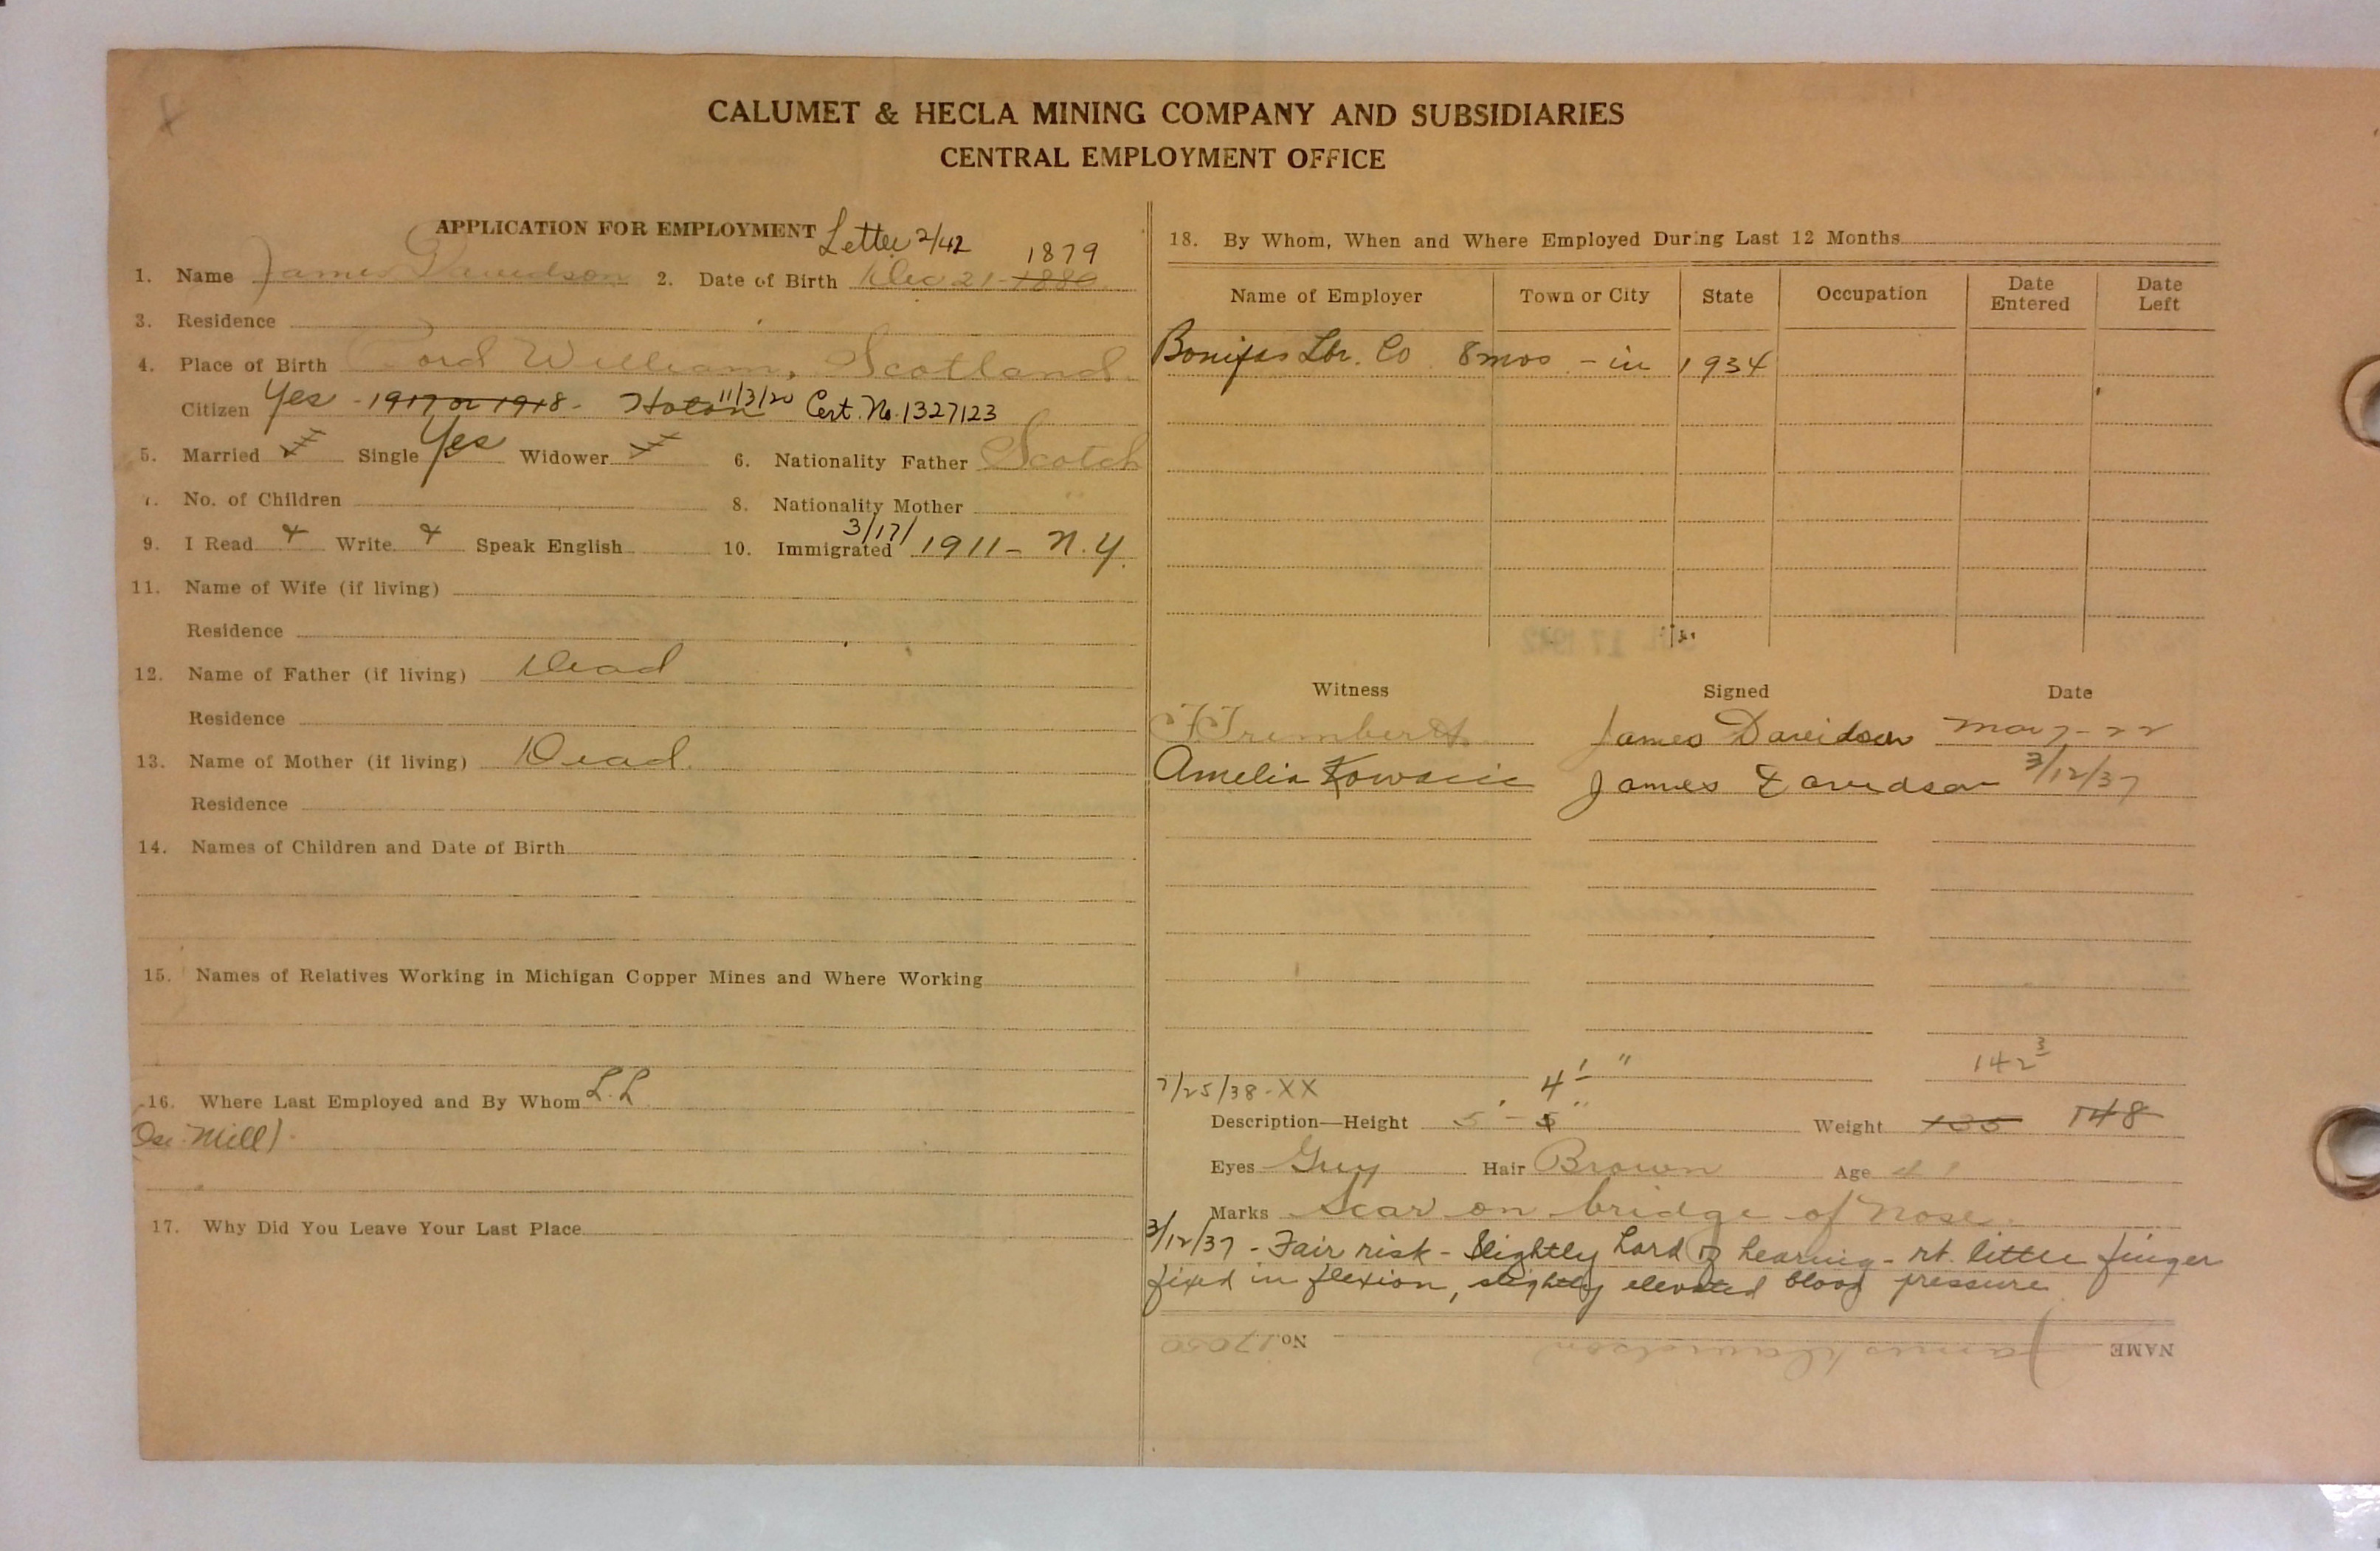 CALUMET & HECLA MINING COMPANY AND SUBSIDIARIES
CENTRAL EMPLOYMENT OFFICE
APPLICATION FOR EMPLOYMENT Letter 2/42
1879
1. Name James Davidson 2. Date of Birth Dec 21-1880
3. Residence
4. Place of Birth Ford William, Scotland.
Citizen Yes - 1917 or 1918 - 11/3/20 Cert. No. 1327123
5. Married Single Yes Widower 6. Nationality Father Scotch
7. No. of Children 8. Nationality Mother "
9. I Read Write Speak English 10. Immigrated 3/17/1911 - N.Y.
11. Name of Wife (if living)
Residence
12. Name of Father (if living) Dead
Residence
13. Name of Mother (if living) Dead.
Residence
14. Names of Children and Date of Birth
15. Names of Relatives Working in Michigan Copper Mines and Where Working
16. Where Last Employed and By Whom L.L
Mill)
17. Why Did You Leave Your Last Place
18. By Whom, When and Where Employed During Last 12 Months
Name of Employer Town or City State Occupation Date Entered Date Left
Bonifas Lbr. Co 8 mos - in 1934
Witness Signed Date
James Davidson 22
Amelia James Davidson 3/12/37
7/25/38-XX 4 1 " 142 3
Description—Height 5' - 5" Weight 135 148
Eyes Grey Hair Brown Age 41
Marks Scar on bridge of nose.
3/12/37 - Fair risk - Slightly hard of hearing - rt. little finger
fixed in flexion, slightly elevated blood pressure
NAME James Davidson No. 17050